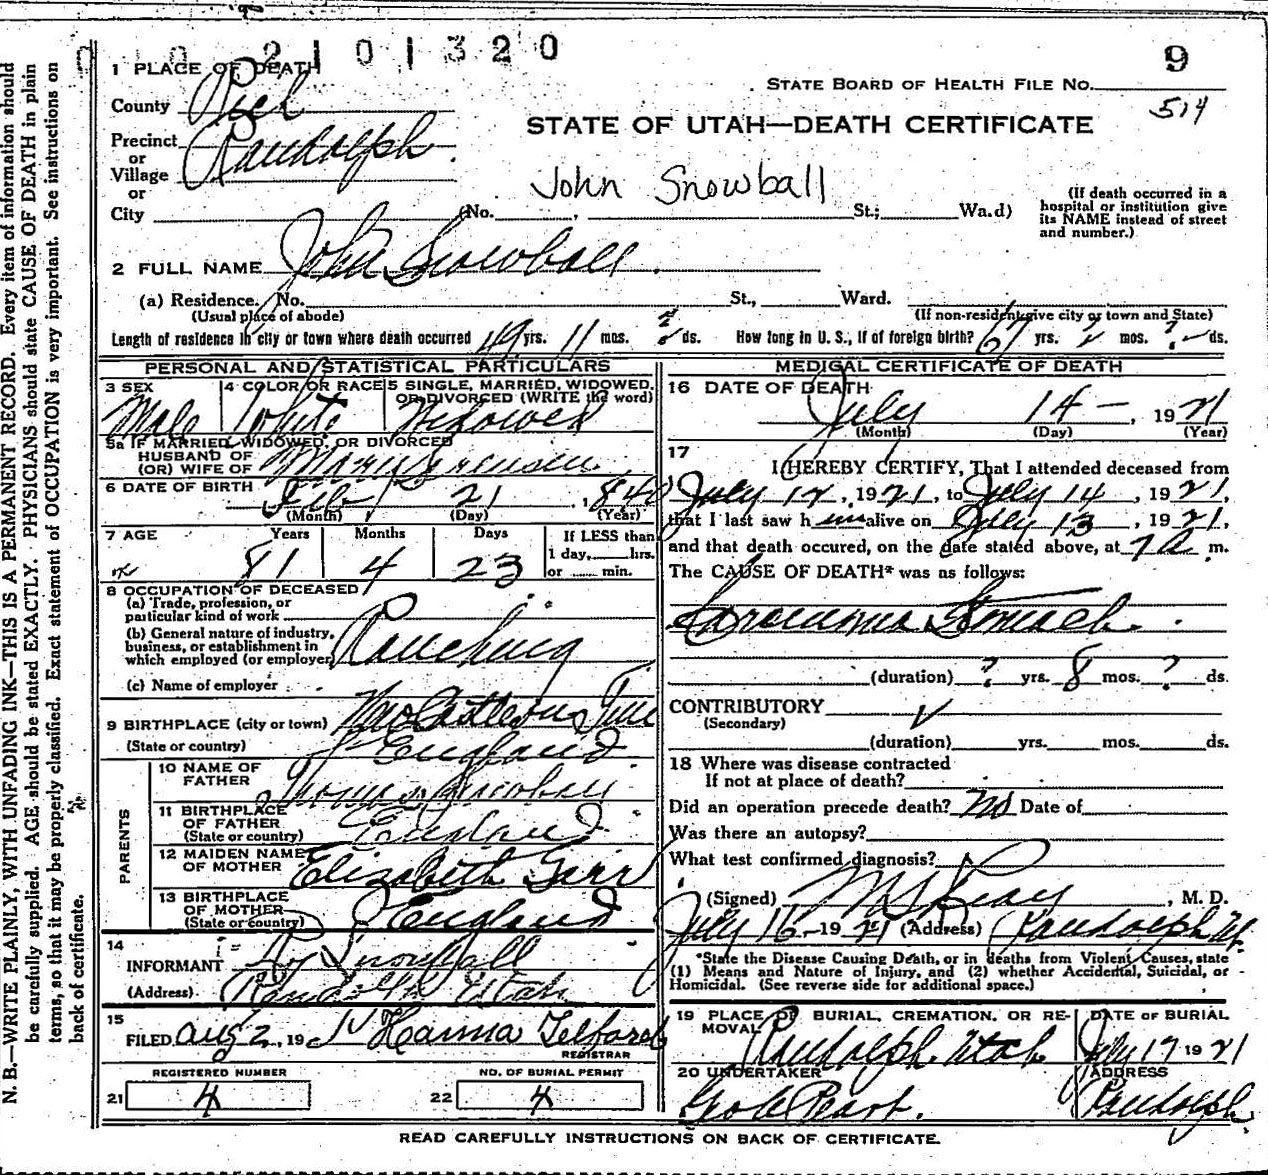 2101320
9
1 PLACE OF DEATH
STATE BOARD OF HEALTH FILE NO.
514
County Rich
STATE OF UTAH—DEATH CERTIFICATE
Precinct
or
Village Randolph.
or
John Snowball
City (No. , St.; Wa.d)
(If death occurred in a
hospital or institution give
its NAME instead of street
and number.)
2 FULL NAME John Snowball.
(a) Residence. No. St., Ward.
(Usual place of abode)
(If non-resident give city or town and State)
Length of residence in city or town where death occurred 49 yrs. 11 mos. ? ds. How long in U. S., if of foreign birth? 67 yrs. ? mos. ? ds.
PERSONAL AND STATISTICAL PARTICULARS
3 SEX Male
4 COLOR OR RACE White
5 SINGLE, MARRIED, WIDOWED, OR DIVORCED (WRITE the word) Widowed
5a IF MARRIED, WIDOWED, OR DIVORCED
HUSBAND OF
(OR) WIFE OF Mary Sorensen
6 DATE OF BIRTH Feb 21, 1840
(Month) (Day) (Year)
7 AGE Years Months Days If LESS than
1 day, hrs.
or min.
81 4 23
8 OCCUPATION OF DECEASED
(a) Trade, profession, or
particular kind of work
(b) General nature of industry,
business, or establishment in
which employed (or employer) Ranching
(c) Name of employer
9 BIRTHPLACE (city or town) New Castle on Tine
(State or country) England
PARENTS
10 NAME OF
FATHER Thomas Snowball
11 BIRTHPLACE
OF FATHER
(State or country) England
12 MAIDEN NAME
OF MOTHER Elizabeth
13 BIRTHPLACE
OF MOTHER
(State or country) England
14
INFORMANT Snowball
(Address) Randolph Utah
15
FILED Aug 2, 19 Hanna Telford
REGISTRAR
REGISTERED NUMBER
21 4
NO. OF BURIAL PERMIT
22 4
MEDICAL CERTIFICATE OF DEATH
16 DATE OF DEATH
July 14 –, 1921
(Month) (Day) (Year)
17
I HEREBY CERTIFY, That I attended deceased from
July 12, 1921, to July 14, 1921,
that I last saw h im alive on July 13, 1921,
and that death occured, on the date stated above, at 7 a m.
The CAUSE OF DEATH* was as follows:
Carcinoma Stomach.
(duration) ? yrs. 8 mos. ? ds.
CONTRIBUTORY
(Secondary)
(duration) yrs. mos. ds.
18 Where was disease contracted
If not at place of death?
Did an operation precede death? No Date of
Was there an autopsy?
What test confirmed diagnosis?
(Signed) , M. D.
July 16–1921 (Address) Randolph Ut.
*State the Disease Causing Death, or in deaths from Violent Causes, state
(1) Means and Nature of Injury, and (2) whether Accidental, Suicidal, or
Homicidal. (See reverse side for additional space.)
19 PLACE OF BURIAL, CREMATION, OR RE-
MOVAL Randolph, Utah
DATE OF BURIAL
July 17 1921
20 UNDERTAKER
Geo A Peart.
ADDRESS
Randolph
READ CAREFULLY INSTRUCTIONS ON BACK OF CERTIFICATE.
N. B.—WRITE PLAINLY, WITH UNFADING INK—THIS IS A PERMANENT RECORD. Every item of information should
be carefully supplied. AGE should be stated EXACTLY. PHYSICIANS should state CAUSE OF DEATH in plain
terms, so that it may be properly classified. Exact statement of OCCUPATION is very important. See instructions on
back of certificate.